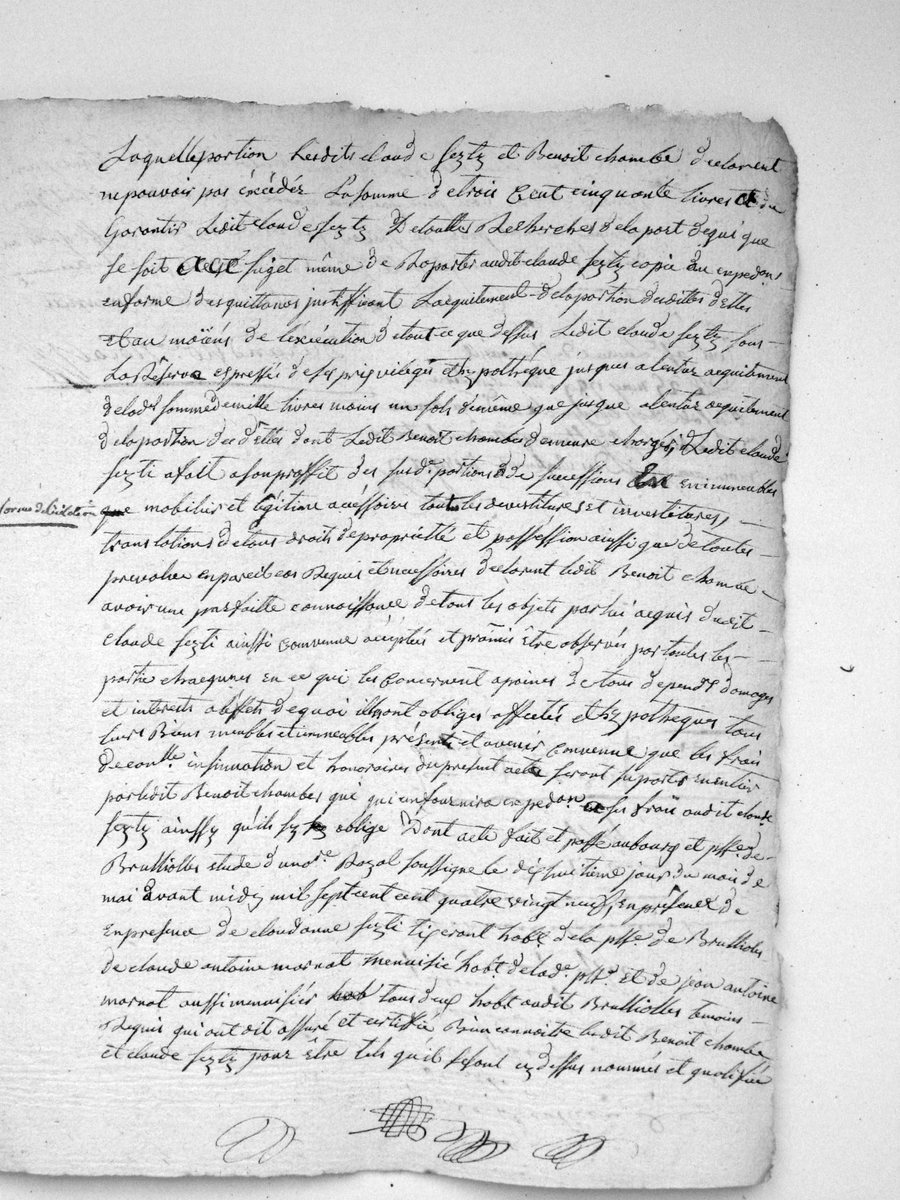 Laquelle portion Lesdits claude sezty et Benoit chambe declarent
ne pouvoir pas éxcédéz La somme de trois Cent cinquante livres et du
Garantir Ledit claude sezty De toutte Recherches de la part de qui que
se soit a ce sujet même de Raporter audit claude sezty copie ou expedons
en forme des quittances justiffiant L'acquitement de la portion desdittes dettes
et au moïéns de l'exécution de tout ce que dessus Ledit claude sezty sous
La Réserve espressée de ses privileges et hypothéque jusques a lentiér acquitement
de lade somme de mille livres moins un sols de même que jusque a lentiér acquitement
de la portion des dettes dont Ledit Benoit chambe demeure chargés, Ledit claude
sezti a fait a son proffit des susde portions de successions en immeubles
forme de licitation
que mobiliér et légitime accéssoires toutes devestitures et investitures,
translations de tous droits de propriétté et possession ainssi que de toutes
prevalue en pareil cas Requis et nécessaires declarent ledit Benoit chambe
avoir une parfaitte connoissance de tous les objets par lui acquis dudit
claude sezti ainssi convenue accéptéés et promis être observés par toutes les
partie chaqunes en ce qui les concernent apeines de tous depends domages
et interets a l'éffét de quoi ills ont obligés affectés et hypotheques tous
leurs Biens meubles et immeubles présents et avenir convenue que les frais
de conlle insinuation et honoraires du present acte seront suportés en entiér
par ledit Benoit chambe qui qui en fournira expedon a ses frais audit claude
sezty ainssy qu'ils sy oblige Dont acte fait et passé au bourg et psse de
Brulliolles etude d'un nore Royal soussigné le dix huitième jour du mois de
mai avant midy mil sept cent cent quatre vingt neuf, En présence de
En presence de claudanne sezti tixerant habt de la psse de Brulliolles
de claude antoine mornat menuisié habt de lade psse et de jean antoine
mornat aussi menuisiér tous deux habt audit Brulliolles temoins
Requis qui ont dit assuré et certiffié Bien connoitre ledit Benoit chambe
et claude sezty pour être tels qu'il se sont cy dessus nommés et qualifiée